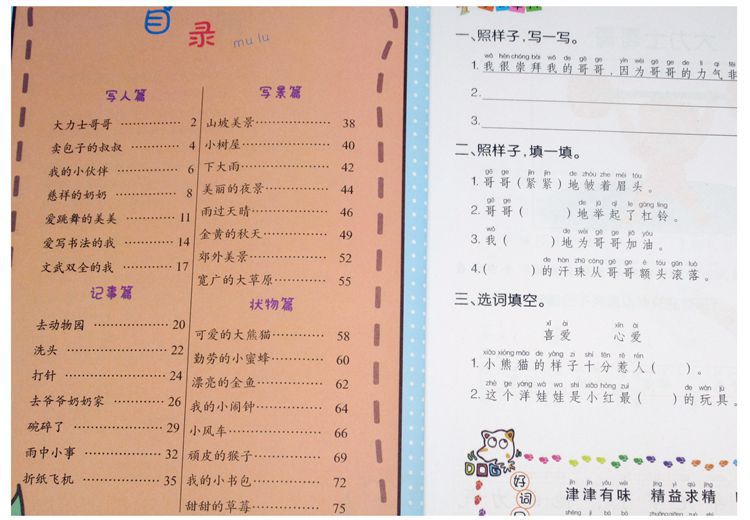 目录 mu lu
写人篇
大力士哥哥 ············ 2
卖包子的叔叔 ············ 4
我的小伙伴 ············ 6
慈祥的奶奶 ············ 8
爱跳舞的美美 ············ 11
爱写书法的我 ············ 14
文武双全的我 ············ 17
记事篇
去动物园 ············ 20
洗头 ············ 22
打针 ············ 24
去爷爷奶奶家 ············ 26
碗碎了 ············ 29
雨中小事 ············ 32
折纸飞机 ············ 35
写景篇
山坡美景 ············ 38
小树屋 ············ 40
下大雨 ············ 42
美丽的夜景 ············ 44
雨过天晴 ············ 46
金黄的秋天 ············ 49
郊外美景 ············ 52
宽广的大草原 ············ 55
状物篇
可爱的大熊猫 ············ 58
勤劳的小蜜蜂 ············ 60
漂亮的金鱼 ············ 62
我的小闹钟 ············ 64
小风车 ············ 66
顽皮的猴子 ············ 69
我的小书包 ············ 72
甜甜的草莓 ············ 75
一、照样子，写一写。
wǒ hěn chóng bài wǒ de gē ge yīn wèi gē ge de lì qì fēi
1. 我很崇拜我的哥哥，因为哥哥的力气非
2.
3.
二、照样子，填一填。
gē ge jǐn jǐn de zhòu zhe méi tóu
1. 哥哥（紧紧）地皱着眉头。
gē ge de jǔ qǐ le gàng líng
2. 哥哥（ ）地举起了杠铃。
wǒ de wèi gē ge jiā yóu
3. 我（ ）地为哥哥加油。
de hàn zhū cóng gē ge é tóu gǔn luò
4.（ ）的汗珠从哥哥额头滚落。
三、选词填空。
xǐ ài xīn ài
喜爱 心爱
xiǎo xióng māo de yàng zi shí fēn rě rén
1. 小熊猫的样子十分惹人（ ）。
zhè ge yáng wá wa shì xiǎo hóng zuì de wán jù
2. 这个洋娃娃是小红最（ ）的玩具。
DOG
好词
jīn jīn yǒu wèi jīng yì qiú jīng
津津有味 精益求精